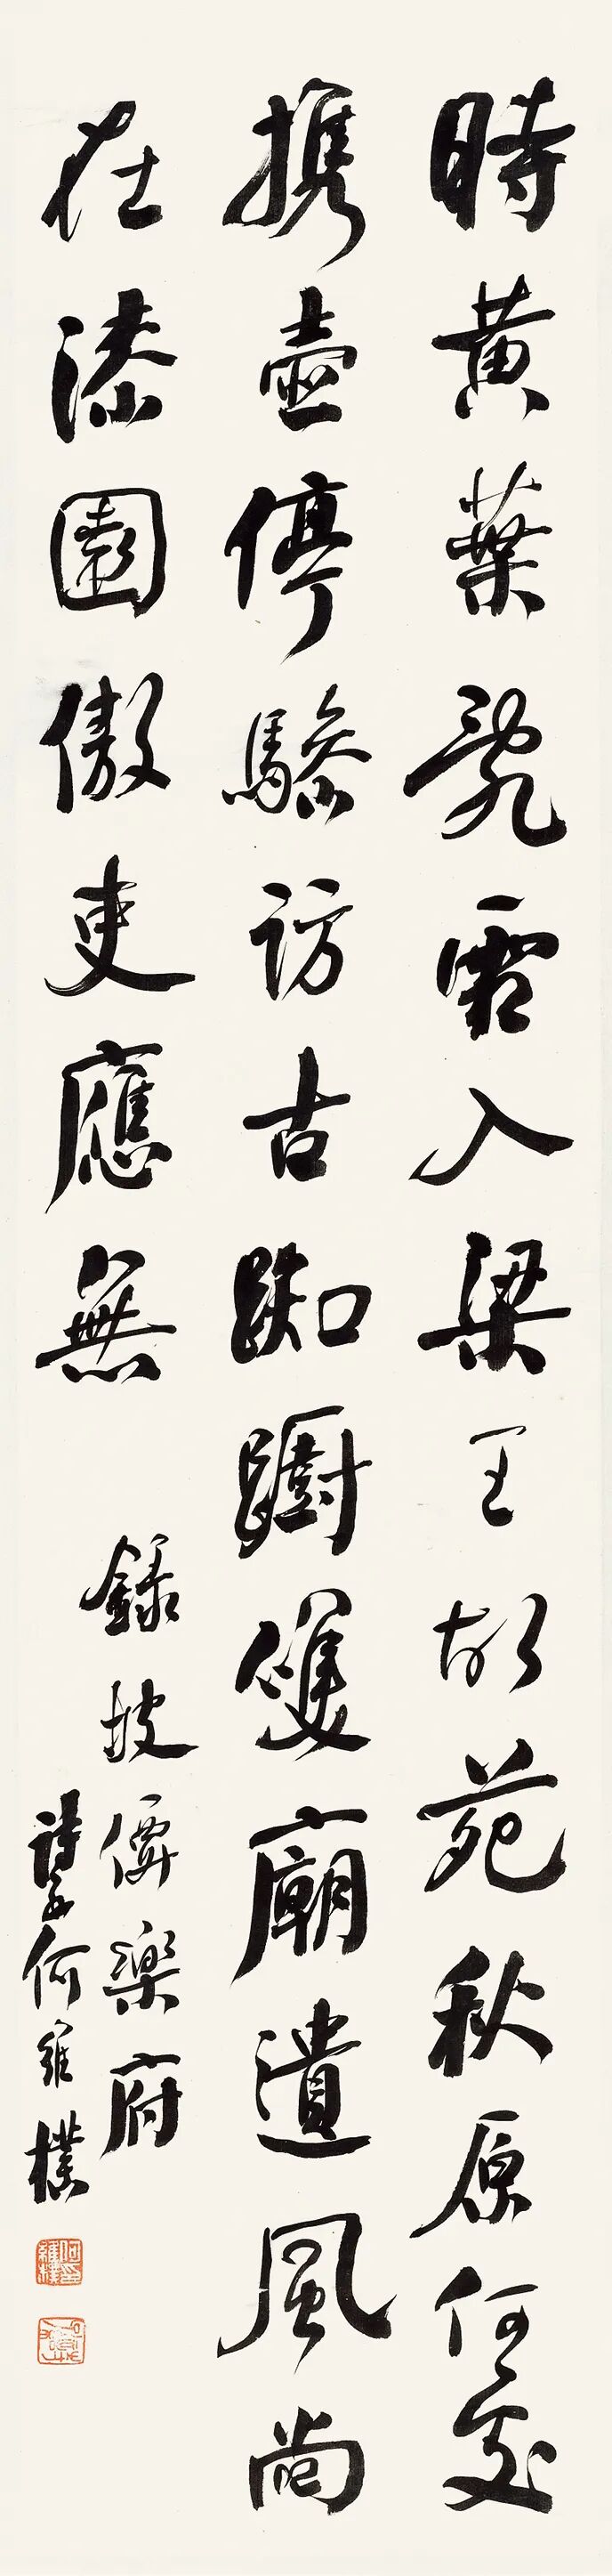 時黄葉亂霜入梁王故苑秋原何處
携壺停驂訪古踟躕雙廟遺風尚
在漆園傲吏應無
錄坡僊樂府
詩孫何維樸
何維樸印